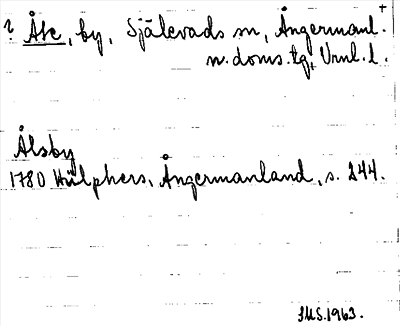 2 Åke, by, Själevads sn, Ångermanl.
n. doms. tg, Vnnl. l.
Ålsby
1780 Hülphers, Ångermanland, s. 244.
1963.